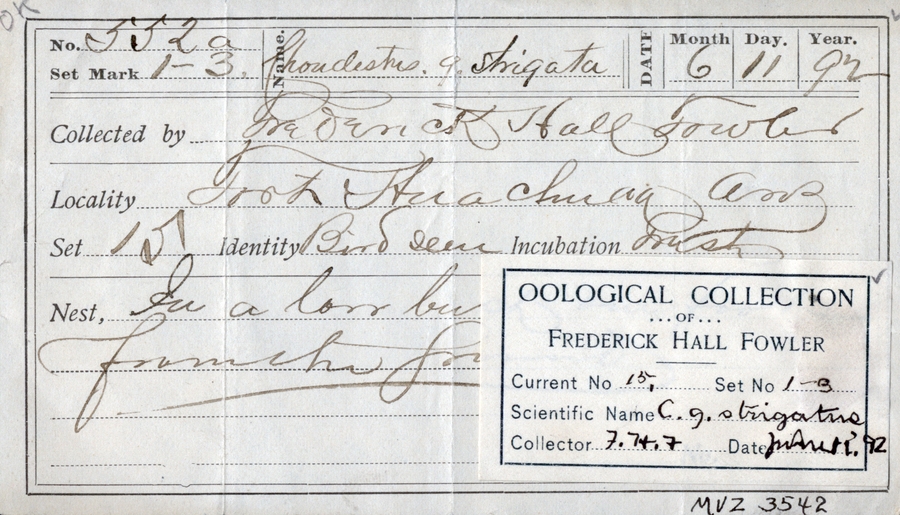 OK
No. 552a Name. Chondestes. g. strigata DATE Month Day. Year.
Set Mark 1-3. 6 11 92
Collected by Frederick Hall Fowler
Locality Fort Huachuca Ariz
Set 1st Identity Bird seen Incubation Fresh
Nest, In a low bu
from the gro
OOLOGICAL COLLECTION
...OF...
FREDERICK HALL FOWLER
Current No 15, Set No 1-3
Scientific Name C. g. strigatus
Collector F.H.F Date June 11. 92
MVZ 3542